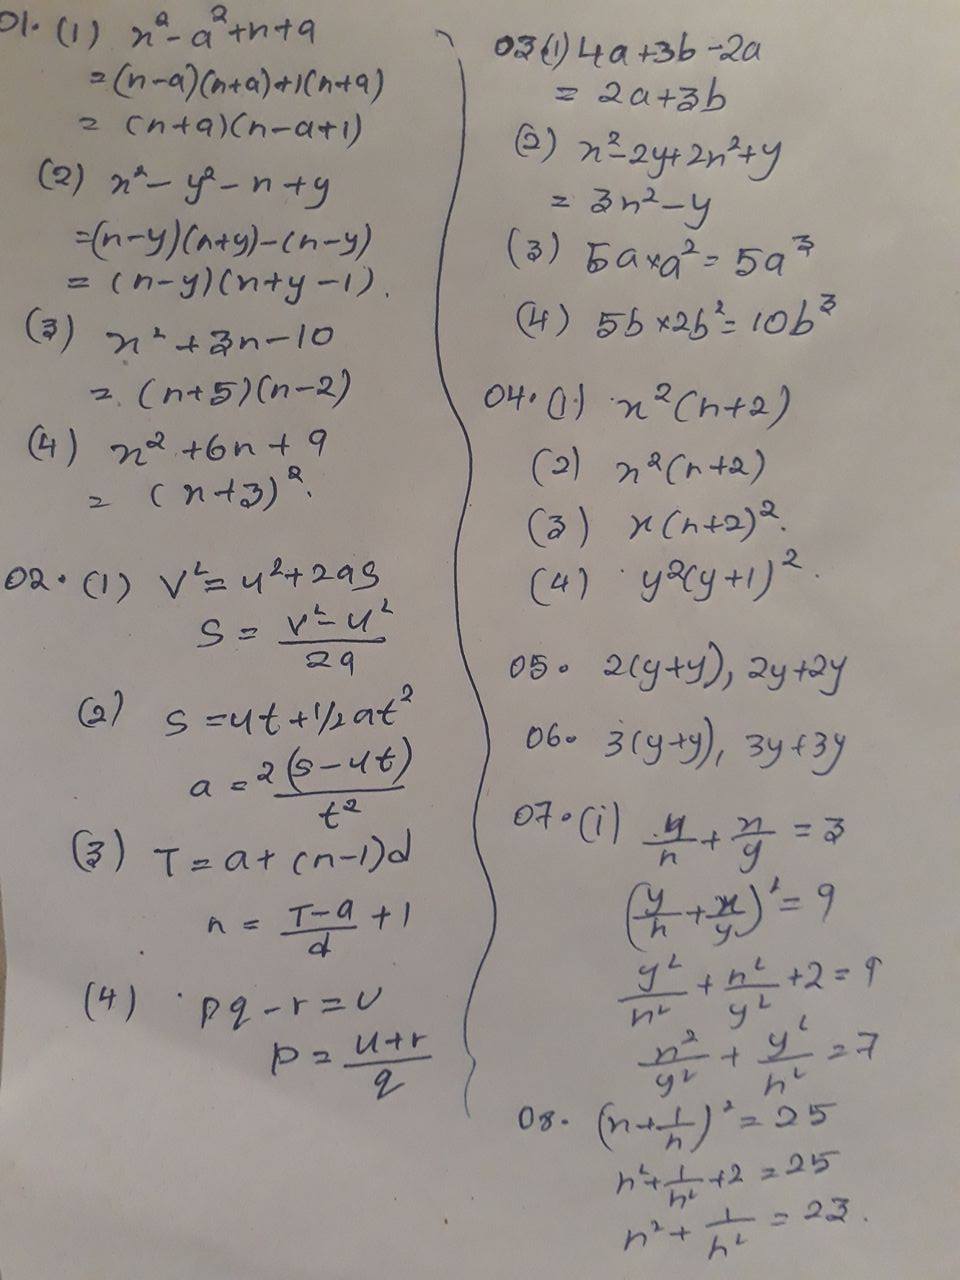 01. (1) x² - a² + x + a
= (x-a)(x+a)+1(x+a)
= (x+a)(x-a+1)
(2) x² - y² - x + y
=(x-y)(x+y)-(x-y)
= (x-y)(x+y-1).
(3) x² + 3x - 10
= (x+5)(x-2)
(4) x² + 6x + 9
= (x+3)².
02. (1) v² = u² + 2as
s = (v² - u²)/2a
(2) s = ut + 1/2 at²
a = 2(s-ut)/t²
(3) T = a + (n-1)d
n = (T-a)/d + 1
(4) pq - r = u
p = (u+r)/q
03 (1) 4a + 3b - 2a
= 2a + 3b
(2) x² - 2y + 2x² + y
= 3x² - y
(3) 5a × a² = 5a³
(4) 5b × 2b² = 10b³
04. (1) x²(x+2)
(2) x²(x+2)
(3) x(x+2)².
(4) y²(y+1)².
05. 2(y+y), 2y+2y
06. 3(y+y), 3y+3y
07. (i) y/x + x/y = 3
(y/x + x/y)² = 9
y²/x² + x²/y² + 2 = 9
x²/y² + y²/x² = 7
08. (x + 1/x)² = 25
x² + 1/x² + 2 = 25
x² + 1/x² = 23.